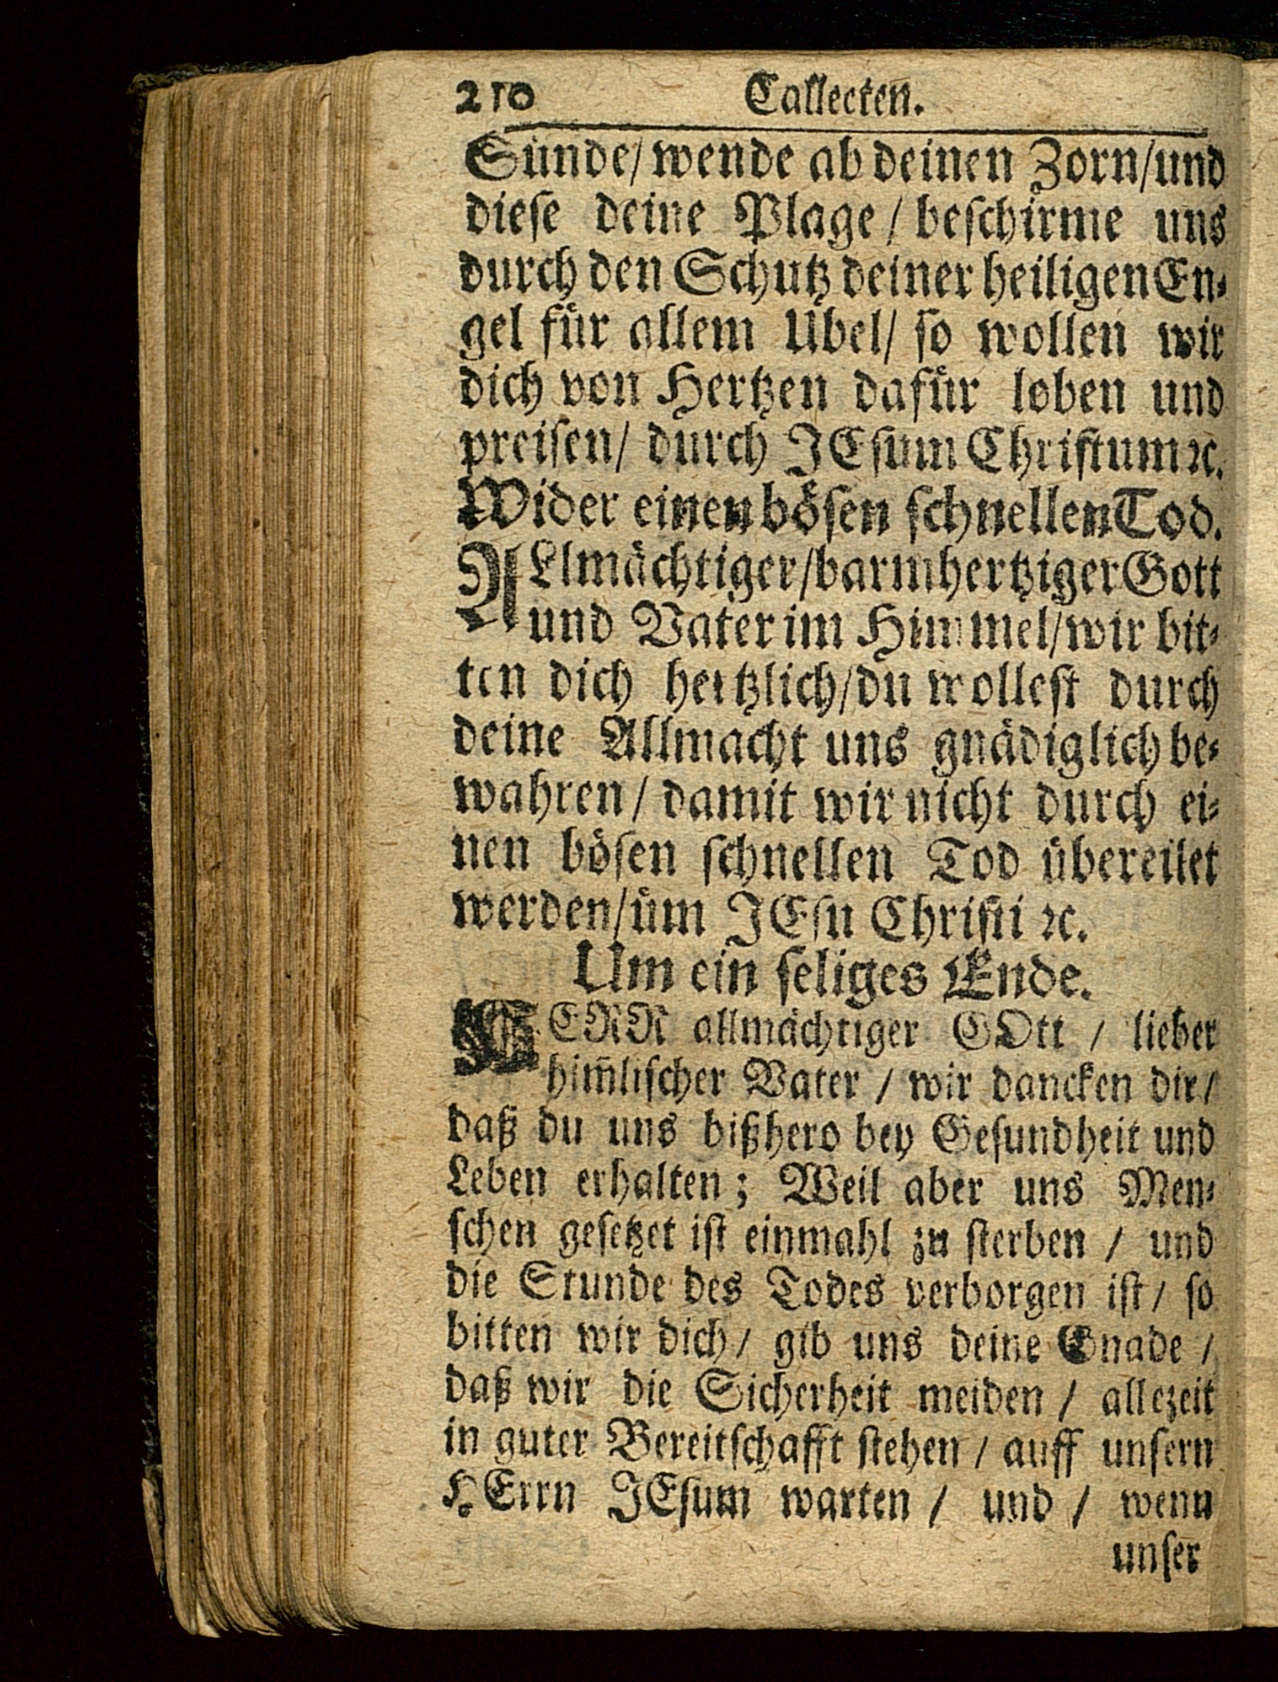 210 Callecten.
Sünde/ wende ab deinen Zorn/und
diese deine Plage / beschirme uns
durch den Schutz deiner heiligen En-
gel für allem Ubel/ so wollen wir
dich von Hertzen dafür loben und
preisen/ durch JEsum Christum ꝛc.
Wider einen bösen schnellen Tod.
ALlmächtiger/barmhertziger Gott
und Vater im Himmel/wir bit-
ten dich hertzlich/du wollest durch
deine Allmacht uns gnädiglich be-
wahren / damit wir nicht durch ei-
nen bösen schnellen Tod übereilet
werden/üm JEsu Christi ꝛc.
Um ein seliges Ende.
HERR allmächtiger GOtt / lieber
him̃lischer Vater / wir dancken dir/
daß du uns bißhero bey Gesundheit und
Leben erhalten; Weil aber uns Men-
schen gesetzet ist einmahl zu sterben / und
die Stunde des Todes verborgen ist/ so
bitten wir dich/ gib uns deine Gnade /
daß wir die Sicherheit meiden / allezeit
in guter Bereitschafft stehen / auff unsern
HErrn JEsum warten / und / wenn
unser